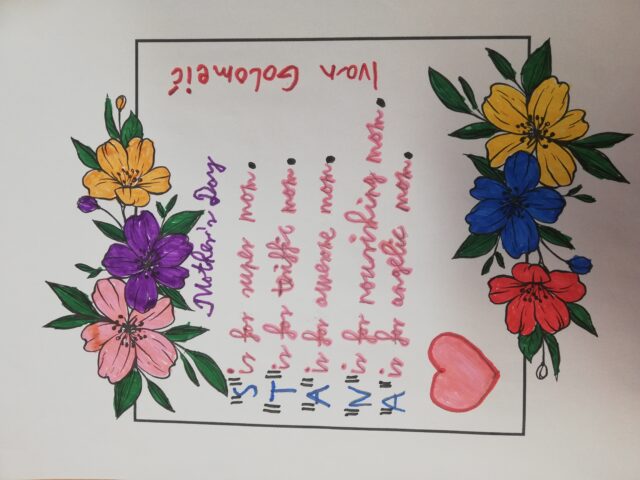 Mother's Day
"S" is for super mom.
"T" is for triffic mom.
"A" is for awesome mom.
"N" is for nourishing mom.
"A" is for angelic mom.
Ivan Golomeić